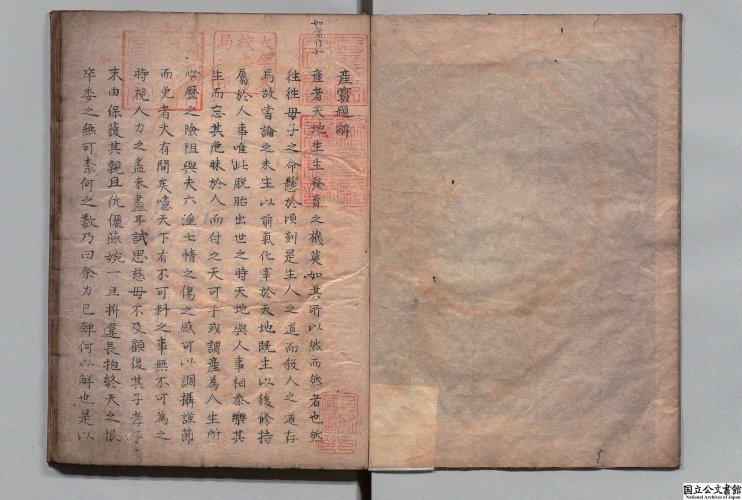 如當作知
産寶題辭
産者天地生生發育之機莫如其所以然而然者也然
徃徃母子之命懸於頃刻是生人之道而殺人之道存
焉故嘗論之未生以前氣化宰於天地既生以後修持
屬於人事唯此脱胎出世之時天地與人事相參樂其
生而忘其危昧於人而付之天可乎或謂產為人生所
必歷之險阻與夫六淫七情之傷之感可以調攝謹節
而免者大有間矣噫天下有不可料之事無不可為之
時視人力之盡未盡耳試思慈母不及顧復其子孝子
末由保護其親且伉儷燕婉一旦拚棄長抱終天之恨
卒委之無可柰何之数乃曰余力已殫何以解也是以
国立公文書館
National Archives of Japan